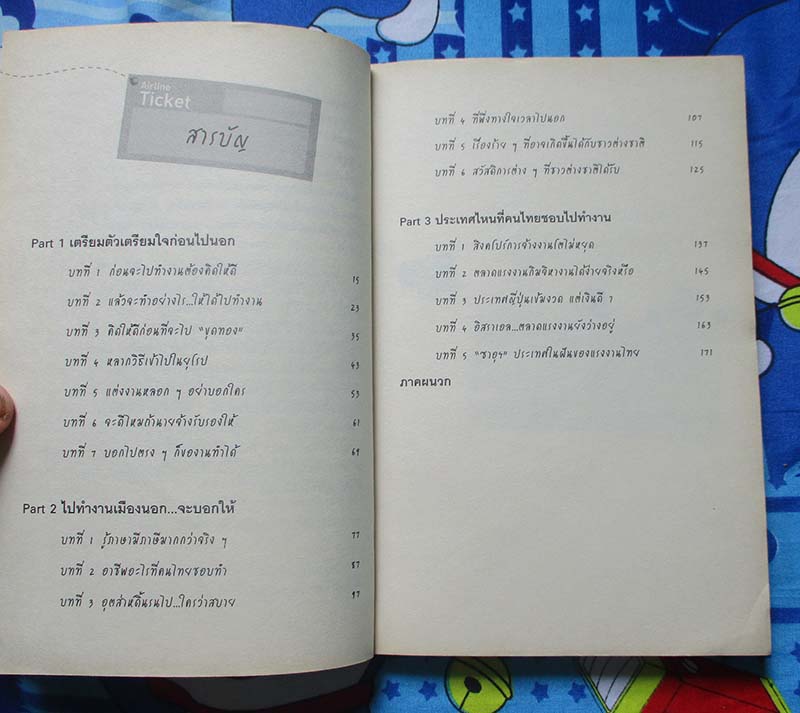 Airline
Ticket
สารบัญ
Part 1 เตรียมตัวเตรียมใจก่อนไปนอก
บทที่ 1 ก่อนจะไปทำงานต้องคิดให้ดี 15
บทที่ 2 แล้วจะทำอย่างไร...ให้ได้ไปทำงาน 23
บทที่ 3 คิดให้ดีก่อนที่จะไป "ขุดทอง" 35
บทที่ 4 หลากวิธีเข้าไปในยุโรป 43
บทที่ 5 แต่งงานหลอก ๆ อย่าบอกใคร 53
บทที่ 6 จะดีไหมถ้านายจ้างรับรองให้ 61
บทที่ 7 บอกไปตรง ๆ ก็ของานทำได้ 69
Part 2 ไปทำงานเมืองนอก...จะบอกให้
บทที่ 1 รู้ภาษามีภาษีมากกว่าจริง ๆ 77
บทที่ 2 อาชีพอะไรที่คนไทยชอบทำ 87
บทที่ 3 อุตส่าห์ดิ้นรนไป...ใครว่าสบาย 97
บทที่ 4 ที่พึ่งทางใจเวลาไปนอก 107
บทที่ 5 เรื่องร้าย ๆ ที่อาจเกิดขึ้นได้กับชาวต่างชาติ 115
บทที่ 6 สวัสดิการต่าง ๆ ที่ชาวต่างชาติได้รับ 125
Part 3 ประเทศไหนที่คนไทยชอบไปทำงาน
บทที่ 1 สิงคโปร์การจ้างงานโตไม่หยุด 137
บทที่ 2 ตลาดแรงงานกิมจิหางานได้ง่ายจริงหรือ 145
บทที่ 3 ประเทศญี่ปุ่นเข้มงวด แต่เงินดี ๆ 153
บทที่ 4 อิสราเอล...ตลาดแรงงานยังว่างอยู่ 163
บทที่ 5 "ซาอุฯ" ประเทศในฝันของแรงงานไทย 171
ภาคผนวก